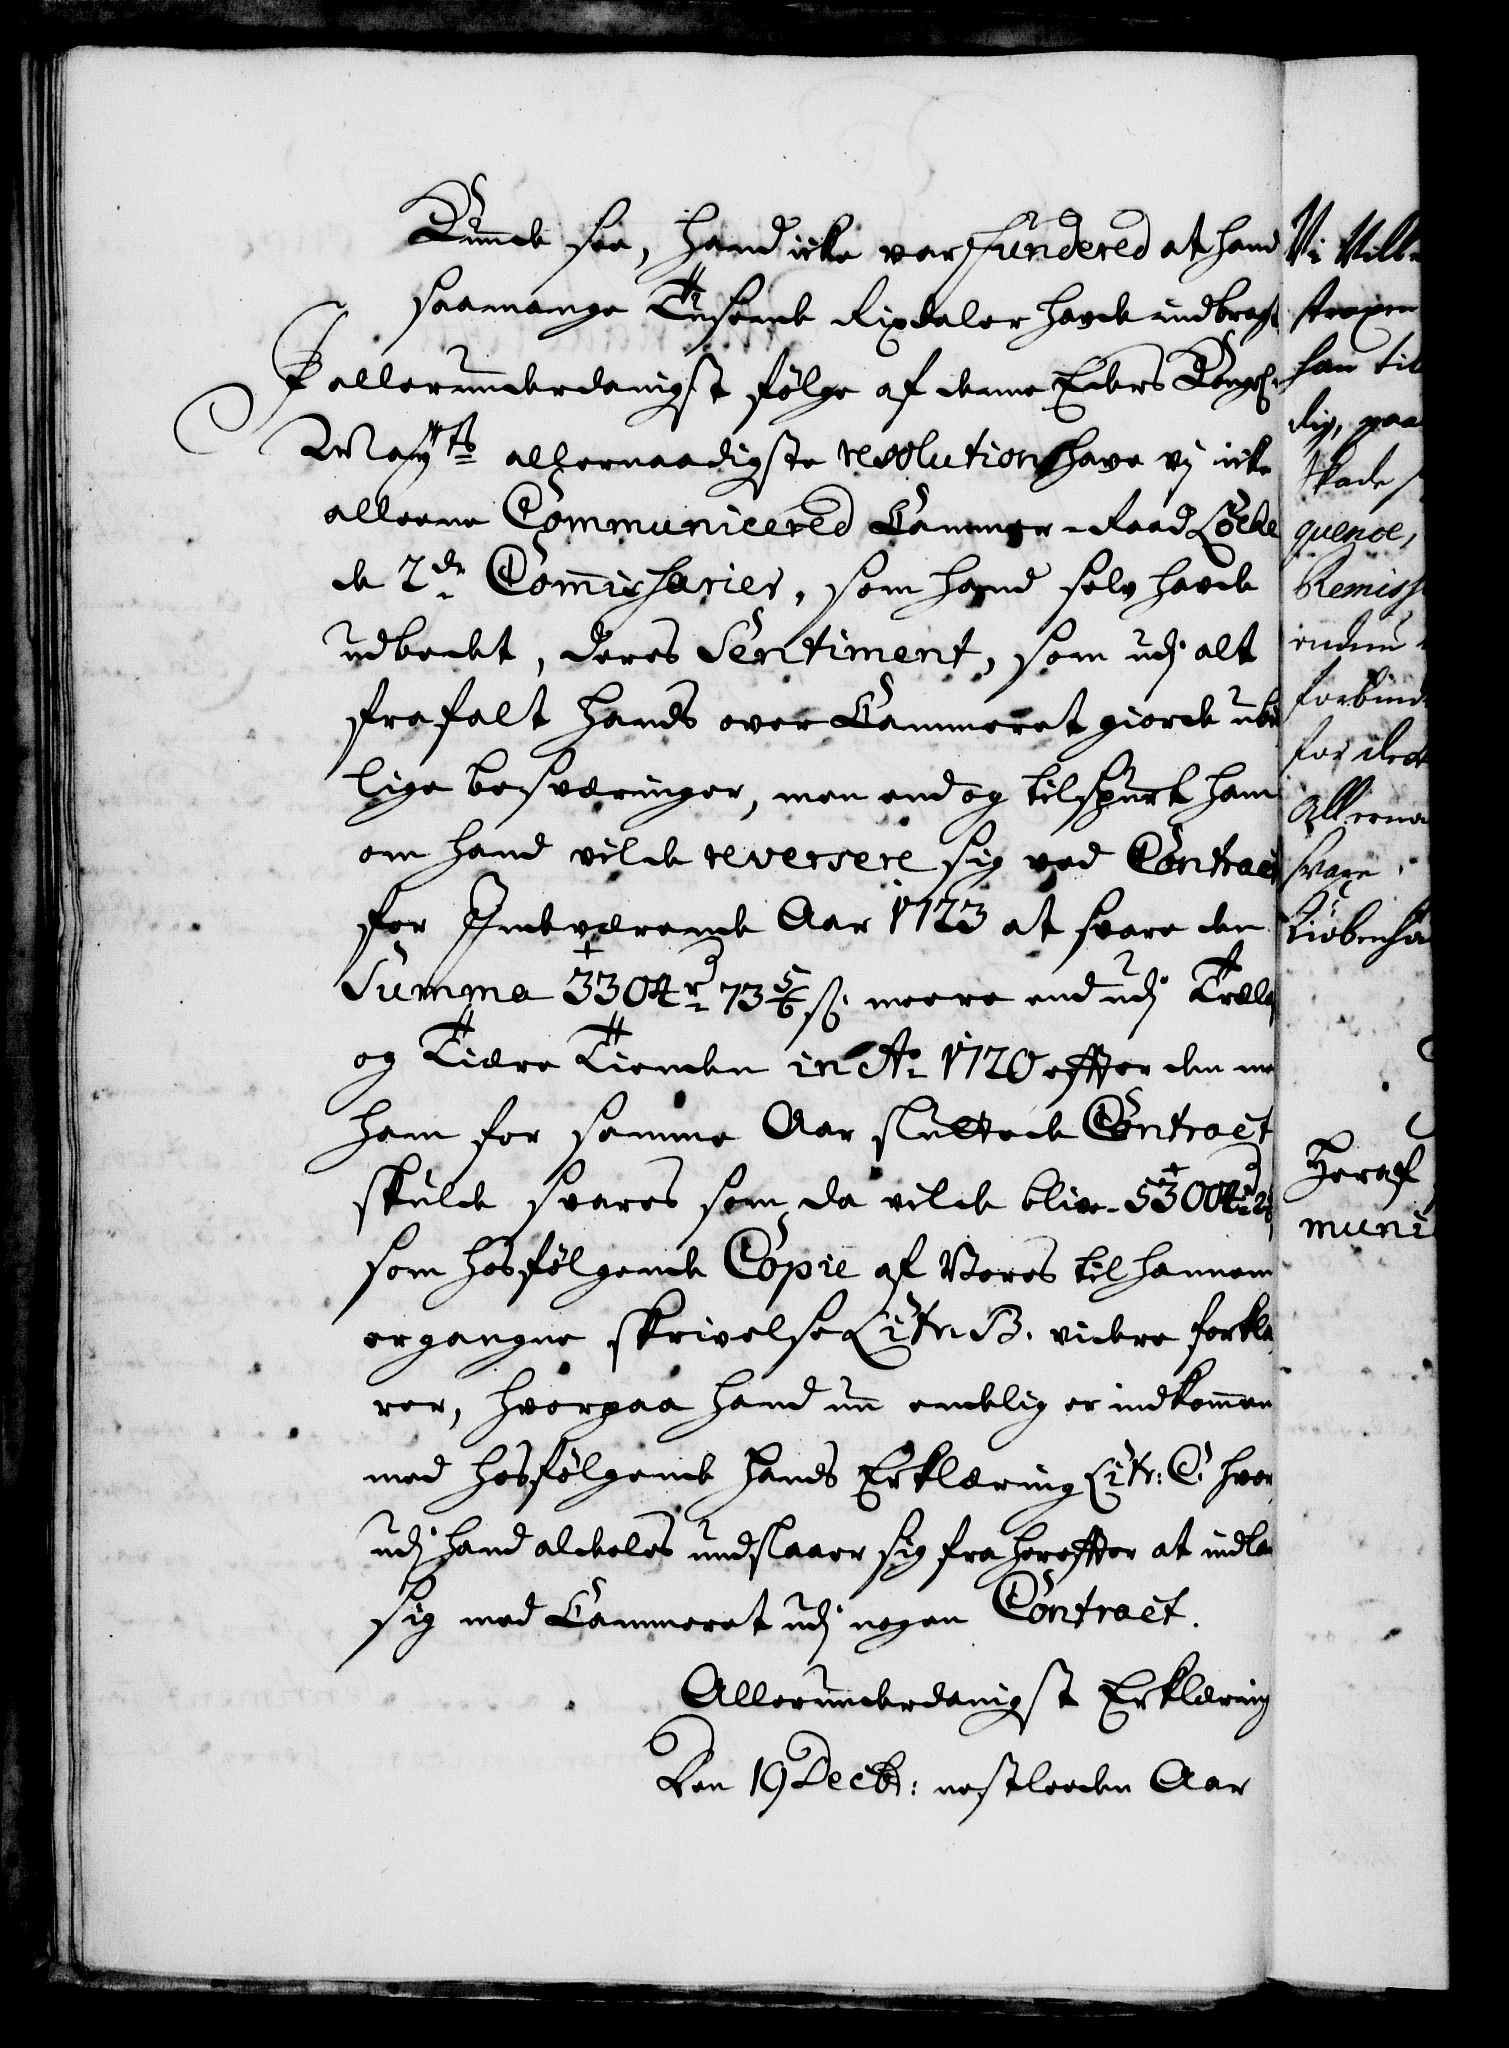 Kunde see, hand icke var funderet at hand
saamange Tusende Rixdaler hafde indbragt
I allerunderdanigst følge af denne Eders Kongl:
Mayts allernaadigste resolution have vj icke
alleene Communicered Cammer-Raad Løcke
de 2de Commissarier, som hand selv hafde
udbedet, deres Sentiment, som udj alt
frafalt hands over Cammeret giorde ubil
lige besværinger, men end og tilspurt ham
om hand vilde reversere sig ved Contract
for Indeværende Aar 1723 at svare den
Summa 3304 rd 73 5/6 s. meere end udj Trælast
og Tiære Tienden in Ao 1720 efter den med
ham for samme Aar sluttede Contract
skulde svares som da vilde blive
som hosfølgende Copie af Vores til hannem
ergangne skrivelse Litr. B. videre forkla
rer, hvorpaa hand nu endelig er indkommen
med hosfølgende hands Erklæring Litr: C. hvor
udj hand aldeeles undslaaer sig fra herefter at indlade
sig med Cammeret udj nogen Contract.
Allerunderdanigst Erklæring
Den 19 Decbr: nestleeden Aar
Vi Ville
straxen
han til
dig, paa
skade
quence,
Remiss
endnu
forbind
for det
Allerna
svare
Kiøbenha
Heraf
muni